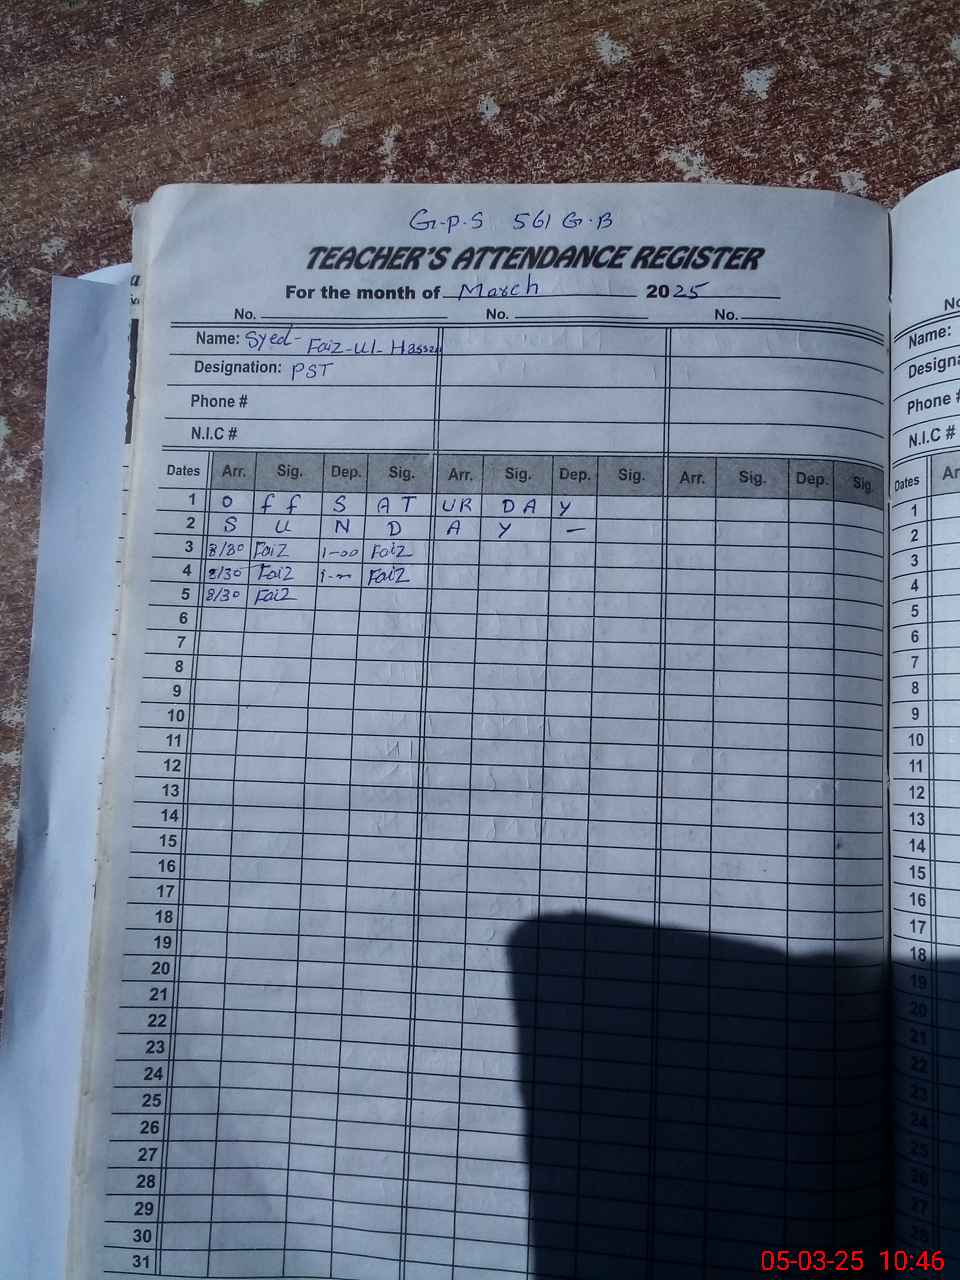 G.P.S 561 G.B
TEACHER'S ATTENDANCE REGISTER
For the month of March 2025
No. No. No.
Name: Syed-Faiz-Ul-Hassan
Designation: PST
Phone #
N.I.C #
Dates Arr. Sig. Dep. Sig. Arr. Sig. Dep. Sig. Arr. Sig. Dep. Sig.
1 O f f S A T UR D A Y
2 S U N D A Y —
3 8/30 Faiz 1-00 Faiz
4 8/30 Faiz 1-00 Faiz
5 8/30 Faiz
6
7
8
9
10
11
12
13
14
15
16
17
18
19
20
21
22
23
24
25
26
27
28
29
30
31
No
Name:
Designa
Phone #
N.I.C #
Dates Ar
1
2
3
4
5
6
7
8
9
10
11
12
13
14
15
16
17
18
19
20
21
22
23
24
25
26
27
28
05-03-25 10:46